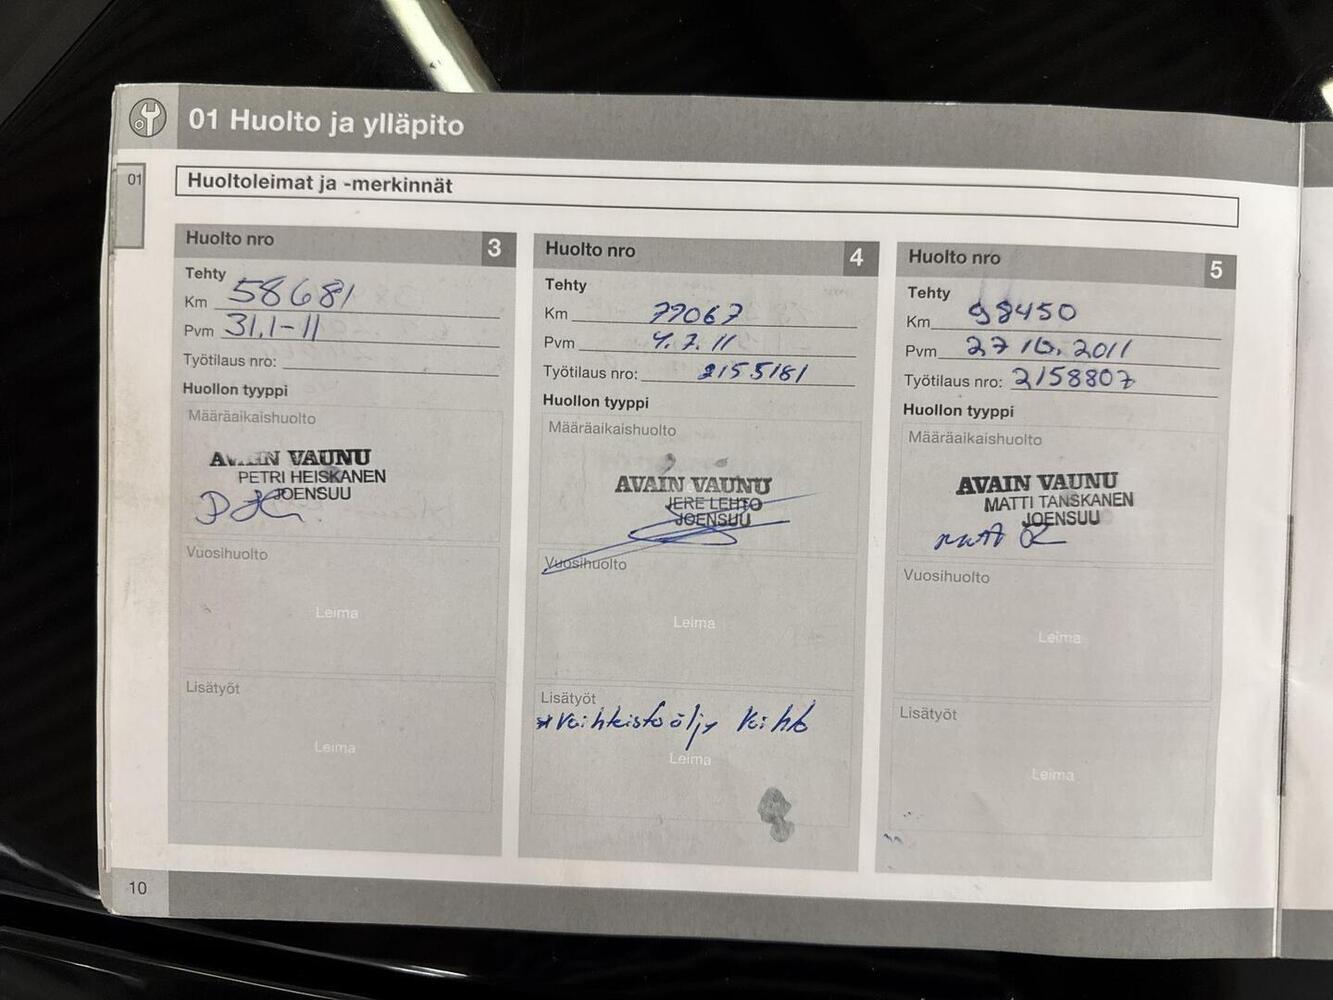 01 Huolto ja ylläpito
01
Huoltoleimat ja -merkinnät
Huolto nro 3
Tehty
Km 58681
Pvm 31.1-11
Työtilaus nro:
Huollon tyyppi
Määräaikaishuolto
AVAIN VAUNU
PETRI HEISKANEN
JOENSUU
Vuosihuolto
Leima
Lisätyöt
Leima
Huolto nro 4
Tehty
Km 79067
Pvm 4.7.11
Työtilaus nro: 2155181
Huollon tyyppi
Määräaikaishuolto
AVAIN VAUNU
JERE LEHTO
JOENSUU
Vuosihuolto
Leima
Lisätyöt
*Vaihteistoöljy
Leima
Huolto nro 5
Tehty
Km 98450
Pvm 27 10. 2011
Työtilaus nro: 2158807
Huollon tyyppi
Määräaikaishuolto
AVAIN VAUNU
MATTI TANSKANEN
JOENSUU
Vuosihuolto
Leima
Lisätyöt
Leima
10